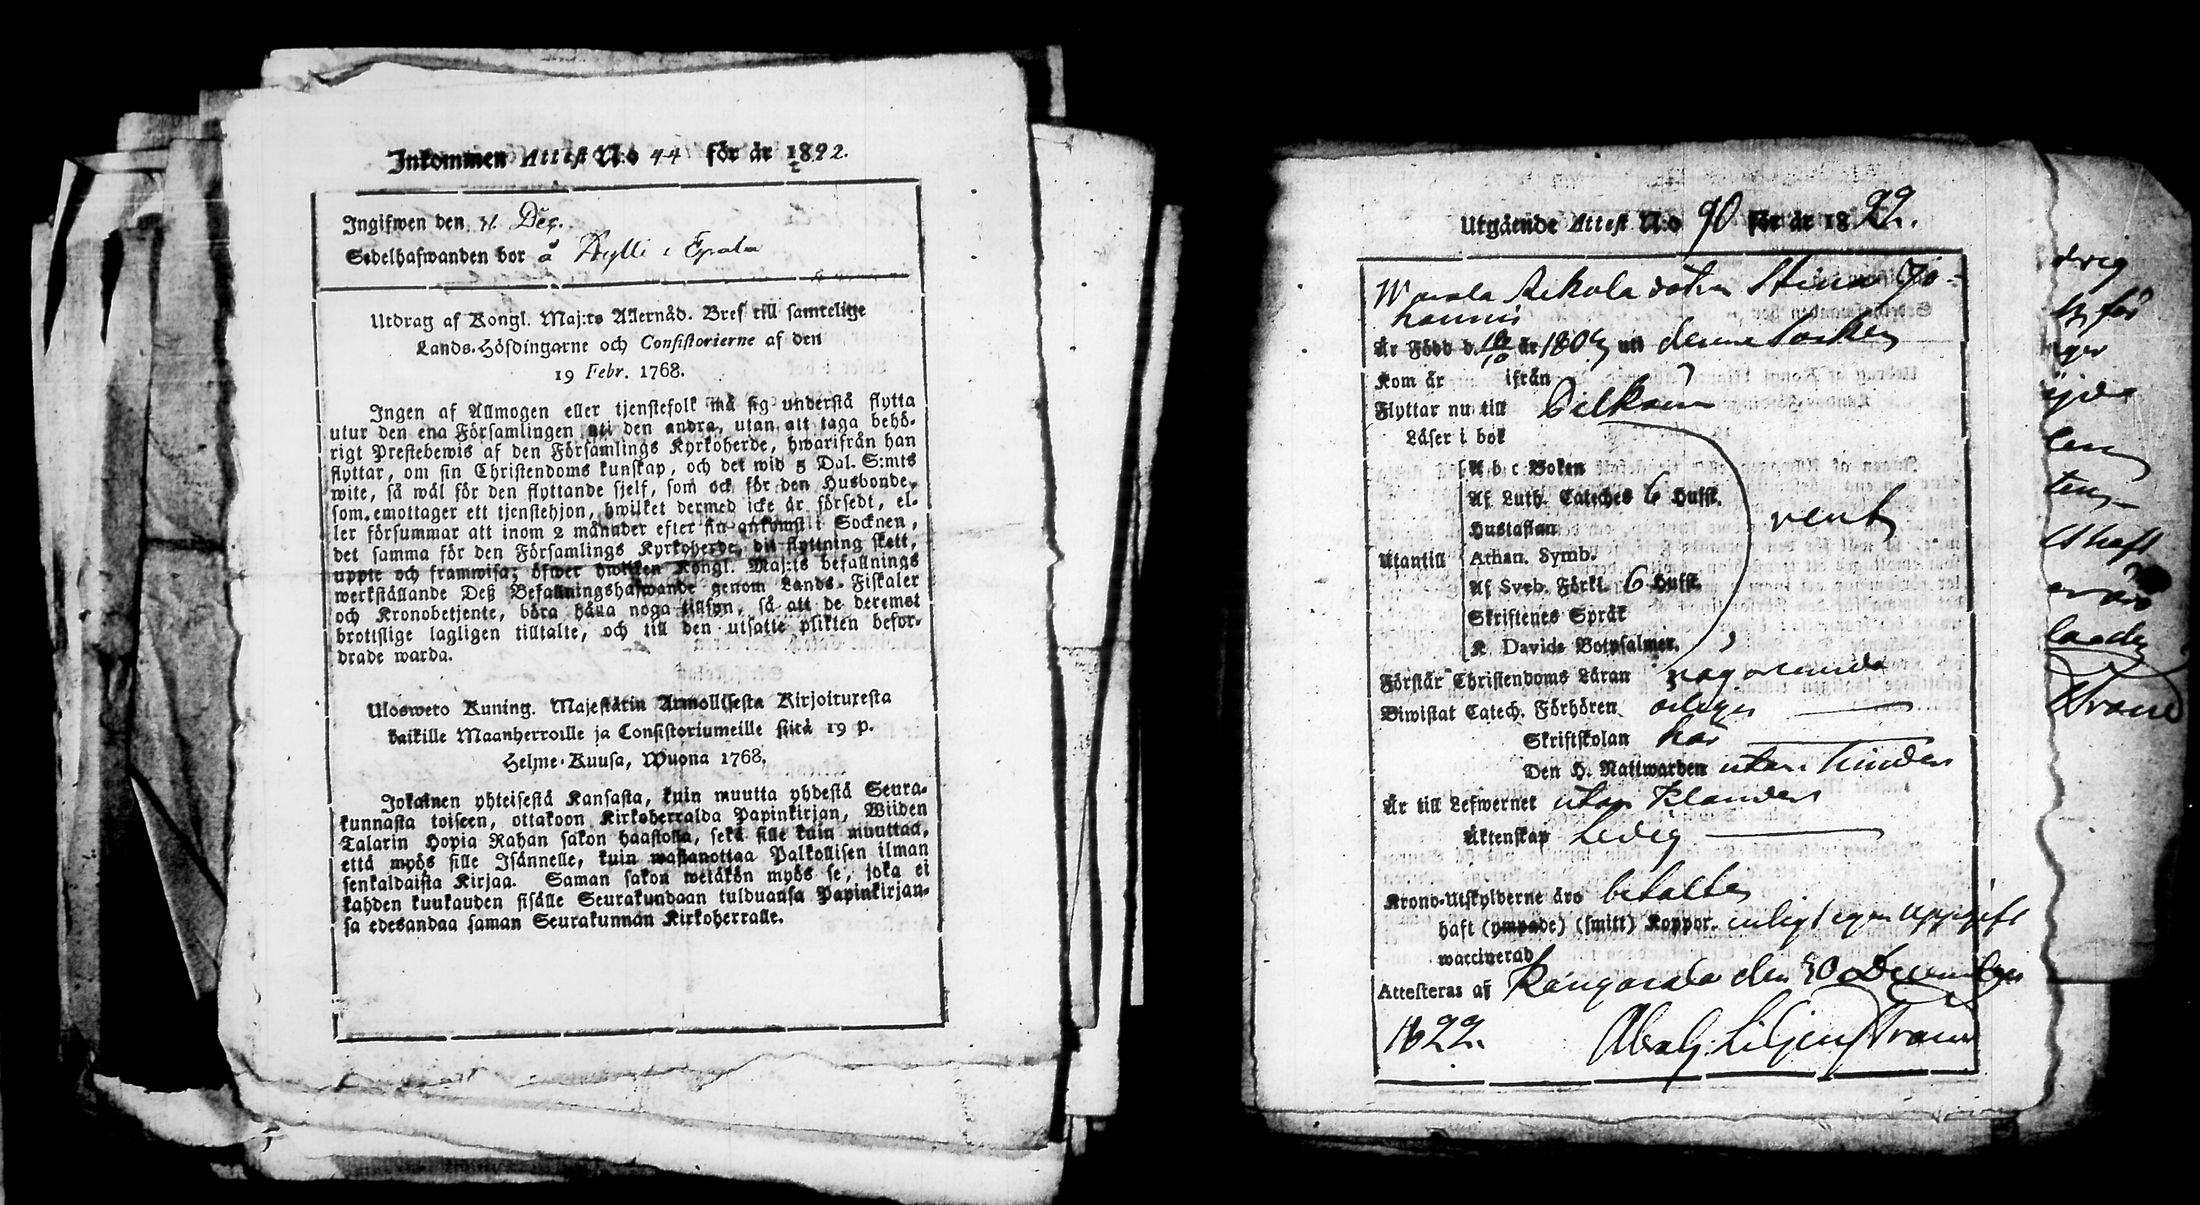 Inkommen Attest N:o 44 för år 1822.
Ingifwen den 31 Dec.
Sedelhafwanden bor å Kylli i Epala
Utdrag af Kongl. Maj:ts Allernåd. Bref till samtelige
Lands-Höfdingarne och Consistorierne af den
19 Febr. 1768.
Ingen af Allmogen eller tjenstefolk må sig understå flytta
utur den ena Församlingen uti den andra, utan att taga behö-
rigt Prestebewis af den Församlings Kyrkoherde, hwarifrån han
flyttar, om sin Christendoms kunskap, och det wid 5 Dal. S:mts
wite, så wäl för den flyttande sjelf, som ock för den Husbonde,
som emottager ett tjenstehjon, hwilket dermed icke är försedt, el-
ler försummar att inom 2 månader efter sin ankomst i Socknen,
det samma för den Församlings Kyrkoherde, dit flyttning skett,
uppte och framwisa; öfwer hwilken Kongl. Maj:ts befallnings
werkställande Deß Befallningshafwande genom Lands-Fiskaler
och Kronobetjente, böra hålla noga tillsyn, så att de deremot
brottslige lagligen tilltalte, och till den utsatte plikten befor-
drade warda.
Ulosweto Kuning. Majestätin Armollisesta Kirjoituresta
kaikille Maanherroille ja Consistoriumeille siitä 19 p.
Helme-Kuusa, Wuona 1768.
Jokainen yhteisestä Kansasta, kuin muutta yhdestä Seura-
kunnasta toiseen, ottakoon Kirkoherralda Papinkirjan, Wiiden
Talarin Hopia Rahan sakon haastolla, sekä sille kuin muuttaa,
että myös sille Isännelle, kuin wastanottaa Palkollisen ilman
senkaldaista Kirjaa. Saman sakon wetäkön myös se, joka ei
kahden kuukauden sisälle Seurakundaan tulduansa Papinkirjan-
sa edesandaa saman Seurakunnan Kirkoherralle.
Utgående Attest N:o 90 för år 1822.
Warala Rekola dotren Stina Jo-
hannis
Är Född d. år 1804 uti denne Socken
Kom år ifrån
Flyttar nu till Birkala
Läser i bok
A b c Boken
Af Luth. Cateches 6 Hufst.
Hustaflan
Utantill Athan. Symb.
Af Sveb. Förkl. 6 Hufst.
Skriftenes Språk
K. Davids Botpsalmer.
rent
Förstår Christendoms Läran någorlunda
Biwistat Catech. Förhören årligen
Skriftskolan här
Den H. Nattwarden utan hinder
Är till Lefwernet utan klander
Äktenskap Ledig
Krono-Utskylderne äro betalte
haft (ympade) (smitt) Koppor. enligt egen uppgift
waccinerad
Attesteras af Kangasala den 30 December
1822. Abrah. Liljenstrand